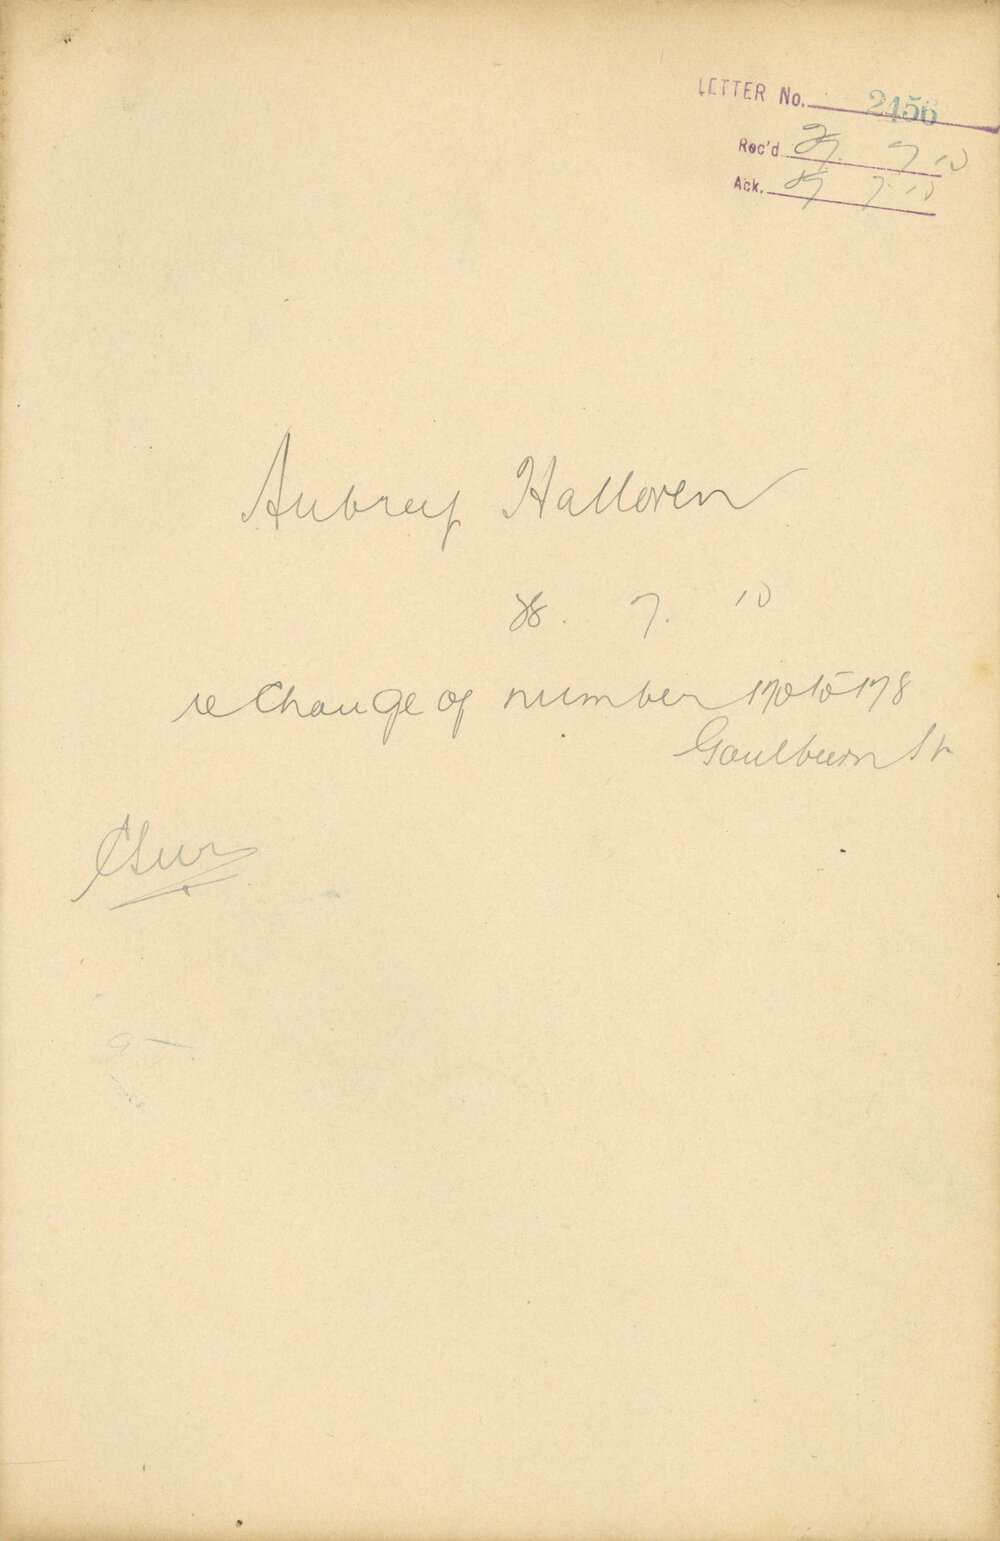 LETTER No. 2456
Rec'd 29. 7 10
Ack. 29 7. 10
Aubrey Halloren
28. 7. 10
re Change of number 170 to 178
Goulburn St